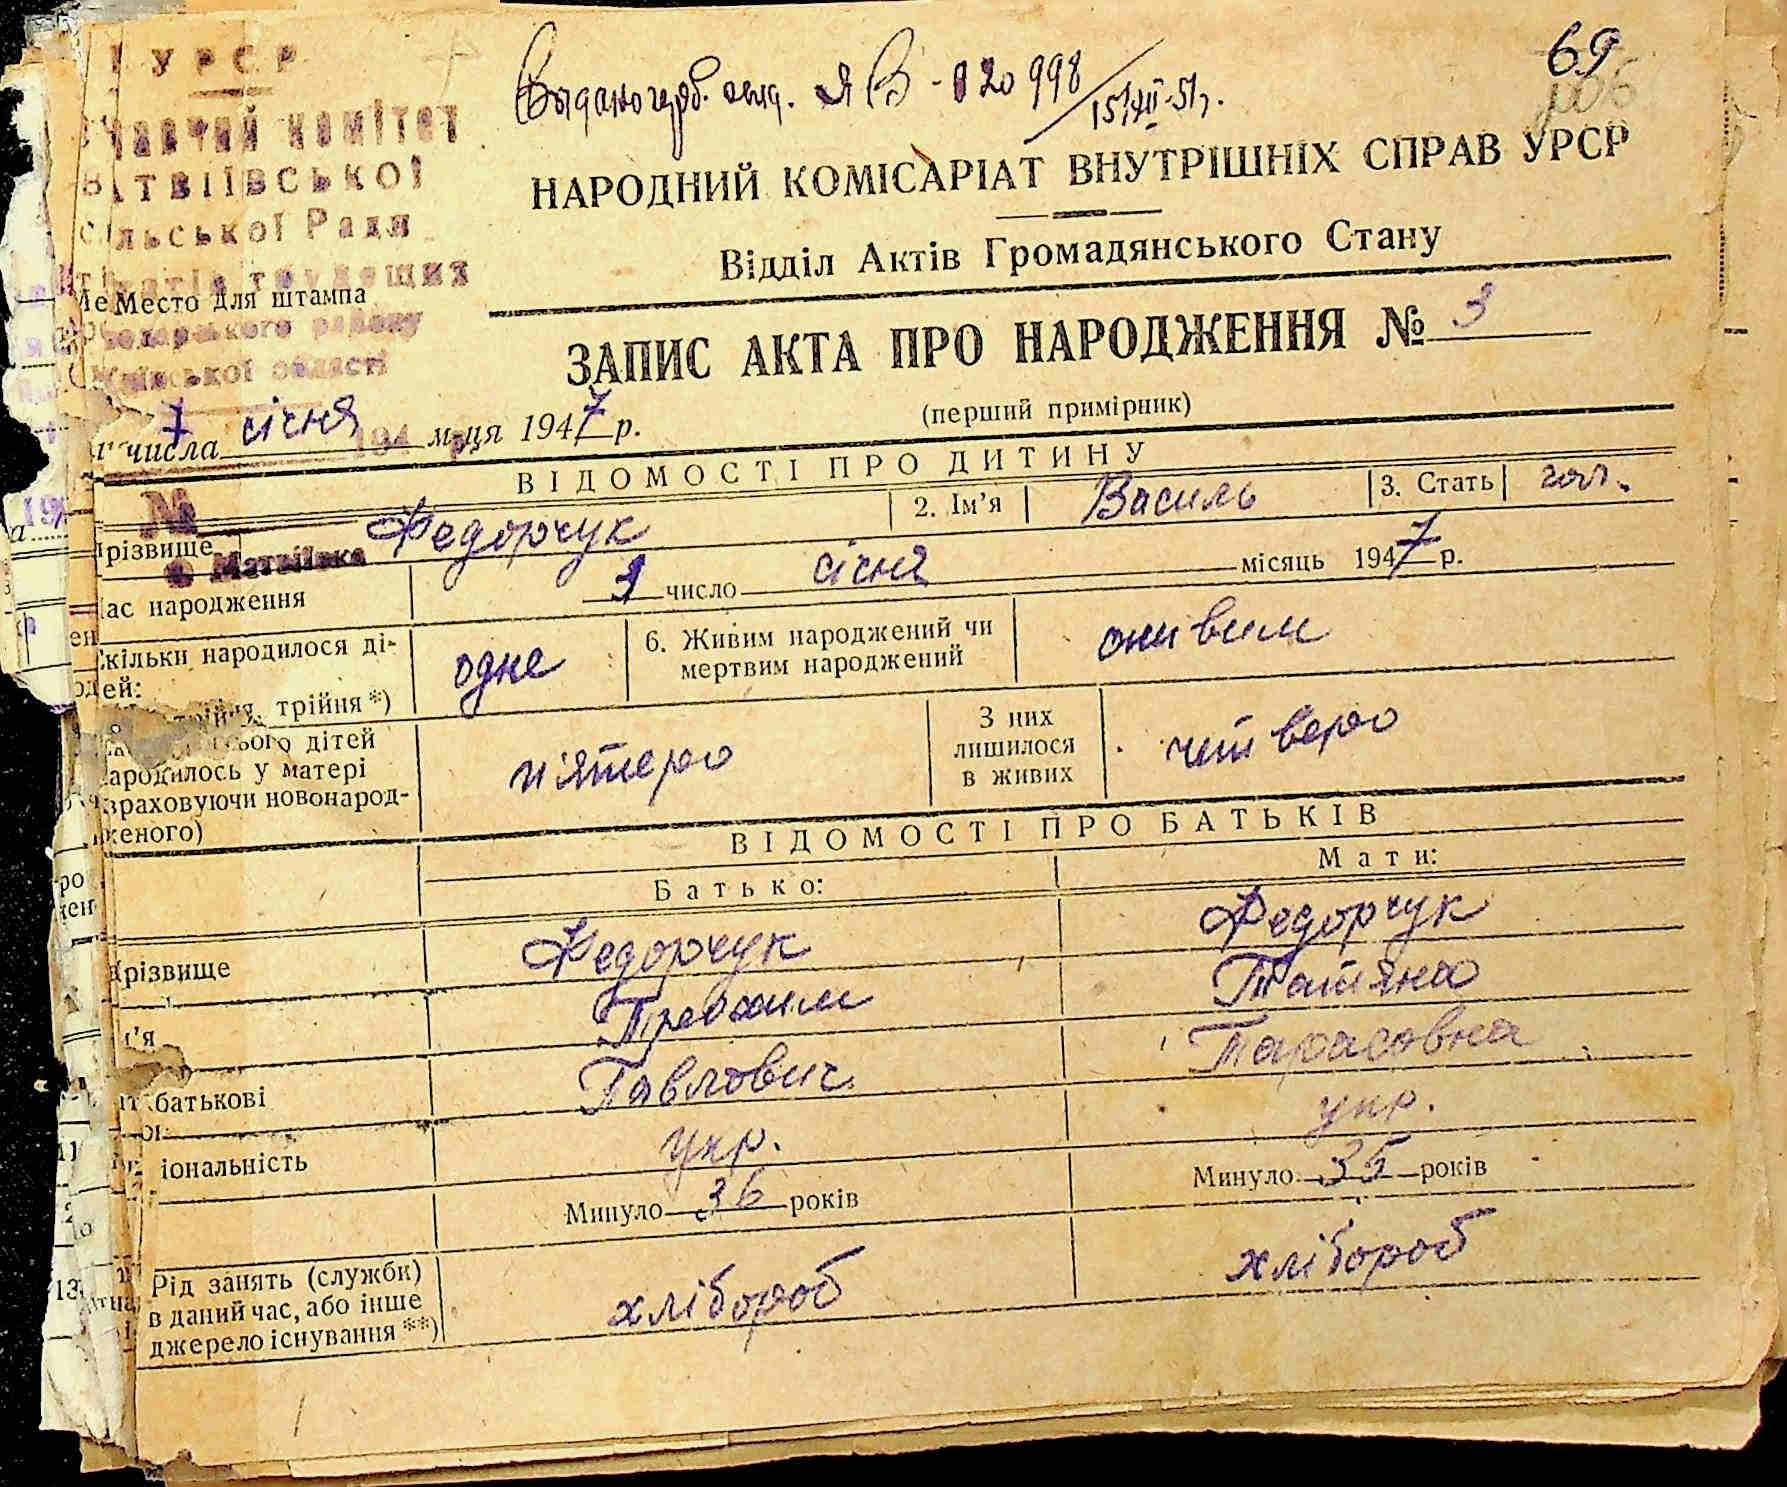 УРСР
комітет
Матвіївської
сільської Ради
трудящих
Место для штампа
району
області
Выдано св. ЯВ - 020998
15/XII-51г.
69
НАРОДНИЙ КОМІСАРІАТ ВНУТРІШНІХ СПРАВ УРСР
Відділ Актів Громадянського Стану
ЗАПИС АКТА ПРО НАРОДЖЕННЯ № 3
(перший примірник)
7 числа січня м-ця 1947 р.
ВІДОМОСТІ ПРО ДИТИНУ
№
с. Матвіївка
Прізвище Федорчук 2. Ім'я Василь 3. Стать чол.
Час народження 1 число січня місяць 1947 р.
Скільки народилося ді-
тей:
трійня*)
одне
6. Живим народжений чи
мертвим народжений
живим
всього дітей
народилось у матері
враховуючи новонарод-
женого)
п'ятеро
З них
лишилося
в живих
четверо
ВІДОМОСТІ ПРО БАТЬКІВ
Батько: Мати:
Прізвище Федорчук Федорчук
Ім'я Трохим Татяна
батькові Павлович Тарасовна
національність укр. укр.
Минуло 36 років Минуло 35 років
13. Рід занять (служби)
в даний час, або інше
джерело існування**)
хлібороб хлібороб